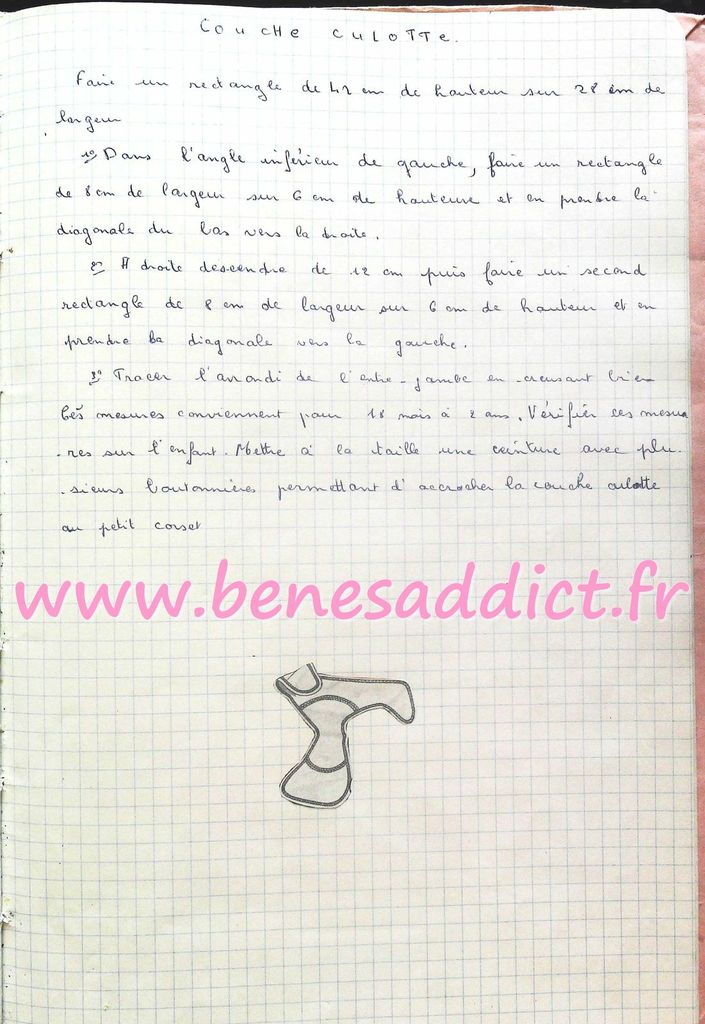 COUCHE CULOTTE.
Faire un rectangle de 42 cm de hauteur sur 28 cm de
largeur
1º Dans l'angle inférieur de gauche, faire un rectangle
de 8 cm de largeur sur 6 cm de hauteur et en prendre la
diagonale du bas vers la droite.
2º A droite descendre de 12 cm puis faire un second
rectangle de 8 cm de largeur sur 6 cm de hauteur et en
prendre la diagonale vers la gauche.
3º Tracer l'arrondi de l'entre-jambe en creusant bien
Ces mesures conviennent pour 18 mois à 2 ans. Vérifier ces mesu
-res sur l'enfant. Mettre à la taille une ceinture avec plu-
-sieurs boutonnières permettant d'accrocher la couche culotte
au petit corset
www.benesaddict.fr